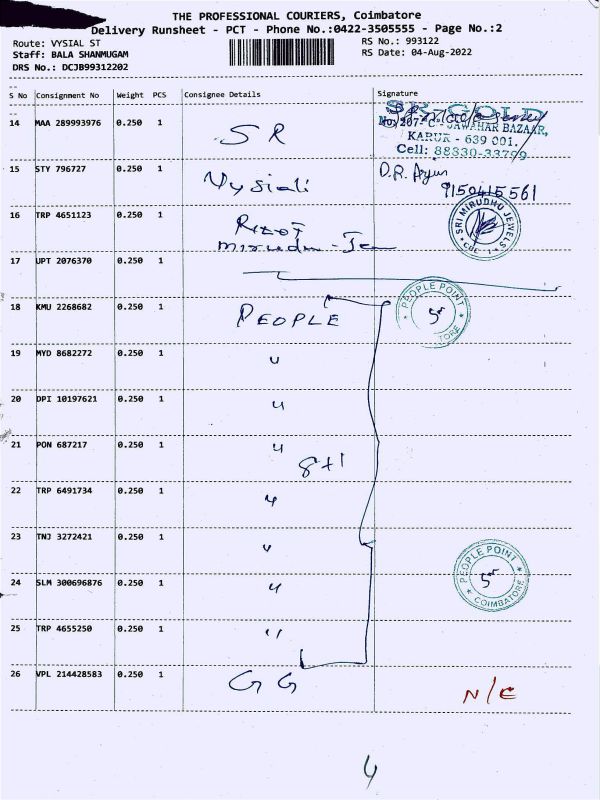 THE PROFESSIONAL COURIERS, Coimbatore
Delivery Runsheet - PCT - Phone No.:0422-3505555 - Page No.:2
Route: VYSIAL ST
RS No.: 993122
Staff: BALA SHANMUGAM
RS Date: 04-Aug-2022
DRS No.: DCJB99312202
S No Consignment No Weight PCS Consignee Details Signature
14 MAA 289993976 0.250 1 SR
SR GOLD
No, 207-C - JAWAHAR BAZAAR,
KARUR - 639 001.
Cell: 88330-33799
15 STY 796727 0.250 1 Vysiali
9150415561
16 TRP 4651123 0.250 1
SRI MIRUDHU JEWELS
CBE - 1
17 UPT 2076370 0.250 1
18 KMU 2268682 0.250 1 PEOPLE
PEOPLE POINT
19 MYD 8682272 0.250 1 "
20 DPI 10197621 0.250 1 "
21 PON 687217 0.250 1 "
8+1
22 TRP 6491734 0.250 1 "
23 TNJ 3272421 0.250 1 "
24 SLM 300696876 0.250 1 "
PEOPLE POINT
COIMBATORE
25 TRP 4655250 0.250 1 "
26 VPL 214428583 0.250 1 GG N/C